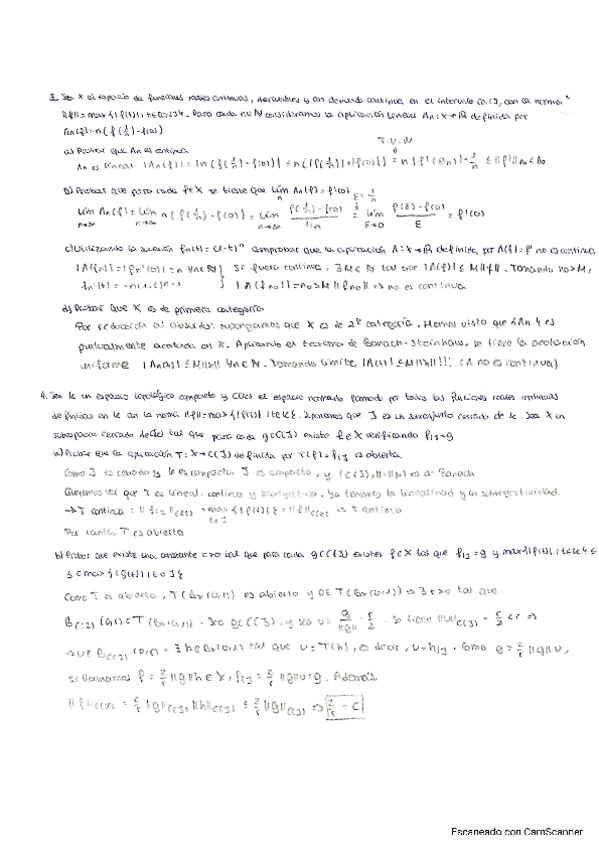 3. Sea X el espacio de funciones reales continuas, derivables y con derivada continua en el intervalo [0,1], con la norma
||f|| = max{|f(t)| : t∈[0,1]}. Para cada n∈N consideramos la aplicación lineal An: X→R definida por
An(f) = n(f(1/n) - f(0))
a) Probar que An es continua
T.V.M
An es lineal |An(f)| = |n(f(1/n) - f(0))| ≤ n(|f(1/n)| + |f(0)|)
b) Probar que para cada f∈X se tiene que lím An(f) = f'(0)
ε = 1/n
lím An(f) = lím n(f(1/n) - f(0)) = lím (f(1/n) - f(0))/(1/n) = lím (f(ε) - f(0))/ε = f'(0)
c) Utilizando la sucesión fn(t) = (1-t)^n comprobar que la aplicación A: X→R definida por A(f) = f' no es continua
|A(fn)| = |fn'(0)| = n ∀n∈N } Si fuera continua, ∃M∈N tal que |A(f)| ≤ M||f||. Tomando no > M,
fn'(t) = -n(1-t)^n-1 |A(fno)| = no > M||fno|| ⇒ no es continua
d) Probar que X es de primera categoría
Por reducción al absurdo: supongamos que X es de 2ª categoría. Hemos visto que {An} es
puntualmente acotada en X. Aplicando el teorema de Banach-Steinhaus, se tiene la acotación
uniforme ∀n∈N. Tomando límite, !!! (A no es continua)
4. Sea K un espacio topológico compacto y C(K) el espacio normado formado por todas las funciones reales continuas
definidas en K con la norma ||f|| = max{|f(t)| : t∈K}. Suponemos que J es un subconjunto cerrado de K. Sea X un
subespacio cerrado de C(K) tal que para cada g∈C(J) existe f∈X verificando f|J = g
a) Probar que la aplicación T: X→C(J) definida por T(f) = f|J es abierta.
Como J es cerrado y K es compacto, J es compacto, y (C(J), ||·||∞) es de Banach
Queremos ver que T es lineal, continua y sobreyectiva. Ya tenemos la linealidad y la sobreyectividad.
→ T continua: ⇒ T continua
Por tanto, T es abierta
b) Probar que existe una constante c>0 tal que para cada g∈C(J) existe f∈X tal que f|J = g y max{|f(t)| : t∈K} ≤
≤ c max{|g(t)| : t∈J}
Como T es abierta, T(Bx(0,1)) es abierto y 0∈T(Bx(0,1)) ⇒ ∃ r>0 tal que
B_C(J)(0,r) ⊂ T(Bx(0,1)). Sea g∈C(J), y sea u = g/||g|| · r/2. Se tiene ||u||_C(J) = r/2 < r ⇒
⇒ u∈B_C(J)(0,r) ⇒ ∃ h∈Bx(0,1) tal que u = T(h), es decir, u = h|J. Como g = 2/r ||g|| u,
si llamamos f = 2/r ||g|| h ∈ X, f|J = 2/r ||g|| u = g. Además
⇒ 2/r = c
Escaneado con CamScanner